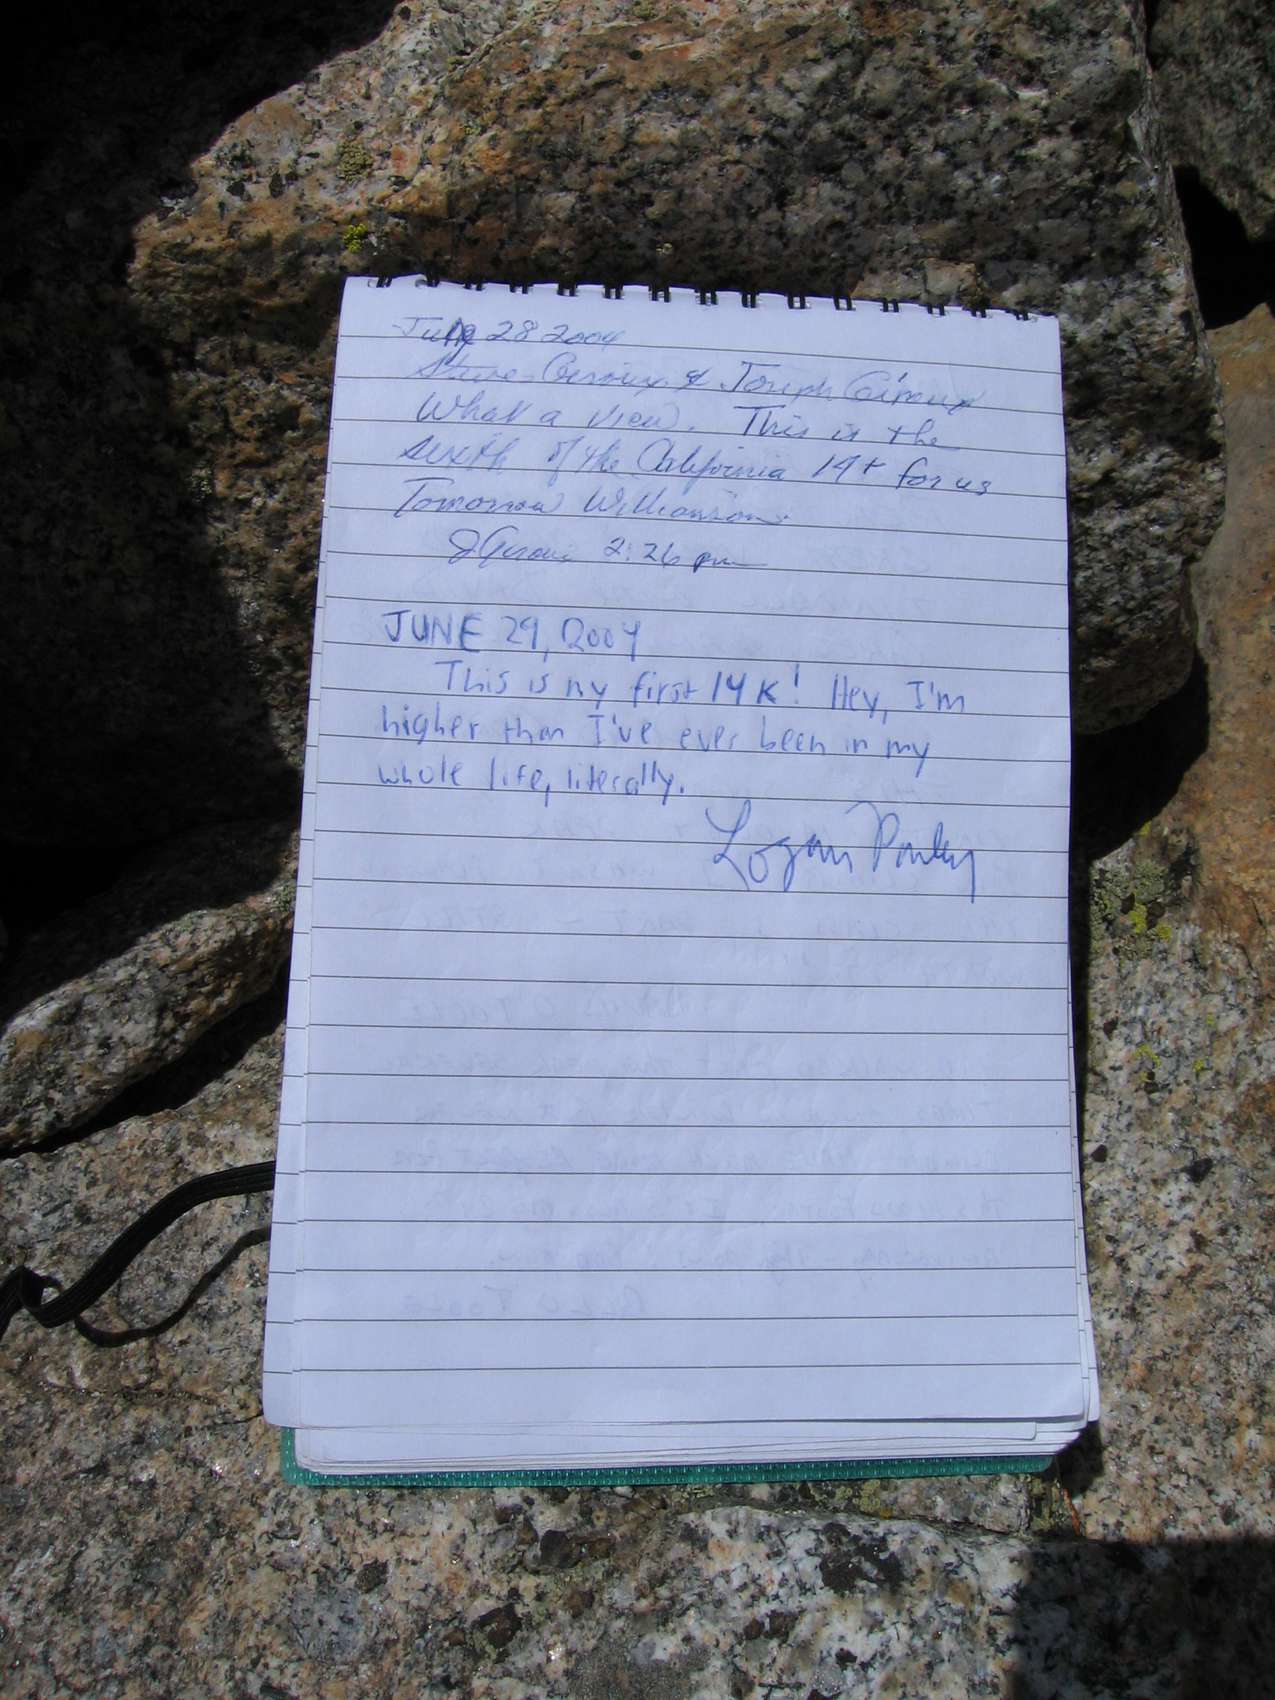 June 28 2004
Steve & Joseph
What a view. This is the
sixth of the California 14+ for us
Tomorrow Williamson.
2:26 pm
JUNE 29, 2004
This is my first 14K! Hey, I'm
higher than I've ever been in my
whole life, literally.
Logan